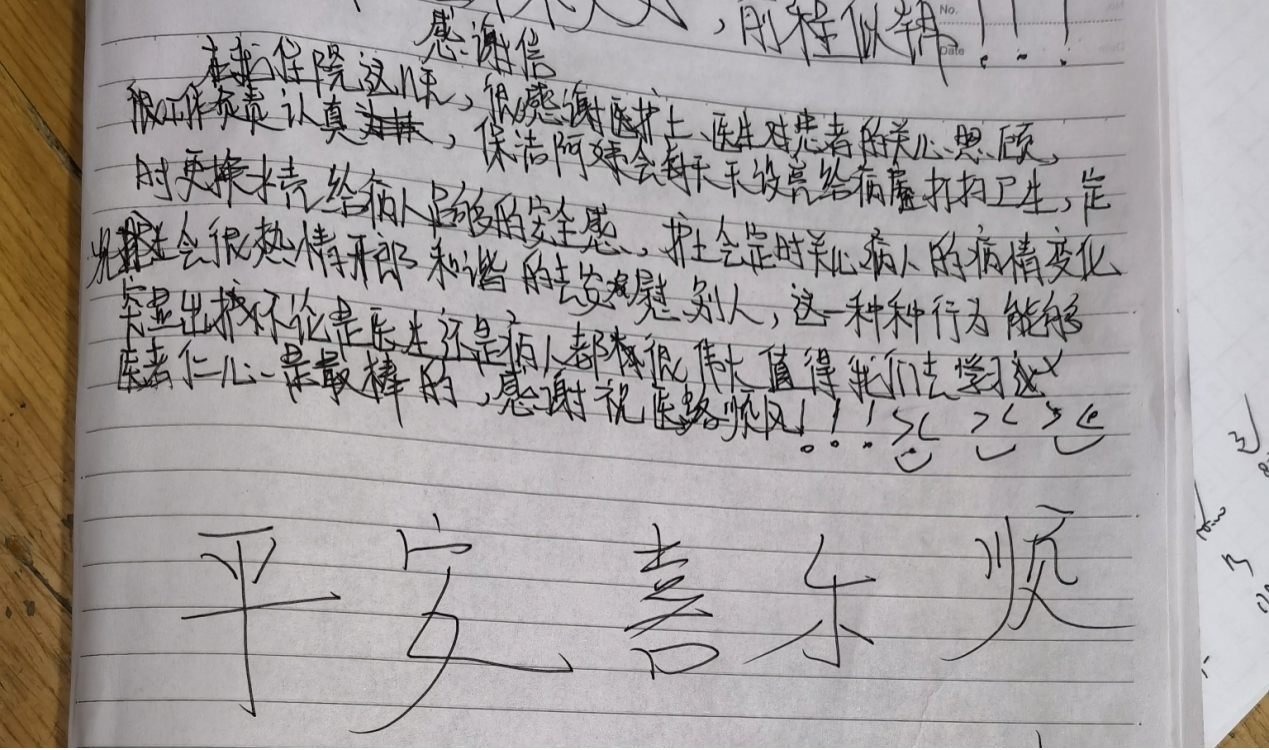 ，前程似锦！！！
No.
Date
感谢信
在我住院这几天，很感谢医护士、医生对患者的关心思顾，
很工作负责认真，保洁阿姨会每天天没亮给病屋打扫卫生，定
时更换水壳给病人足够的安全感、护士会定时关心病人的病情变化
会很热情开郎和谐的去安慰别人，这一种种行为能够
突显出不论是医生还是病人都很伟大值得我们去学习
医者仁心一是最棒的，感谢祝医路顺风！！！
平安喜乐顺